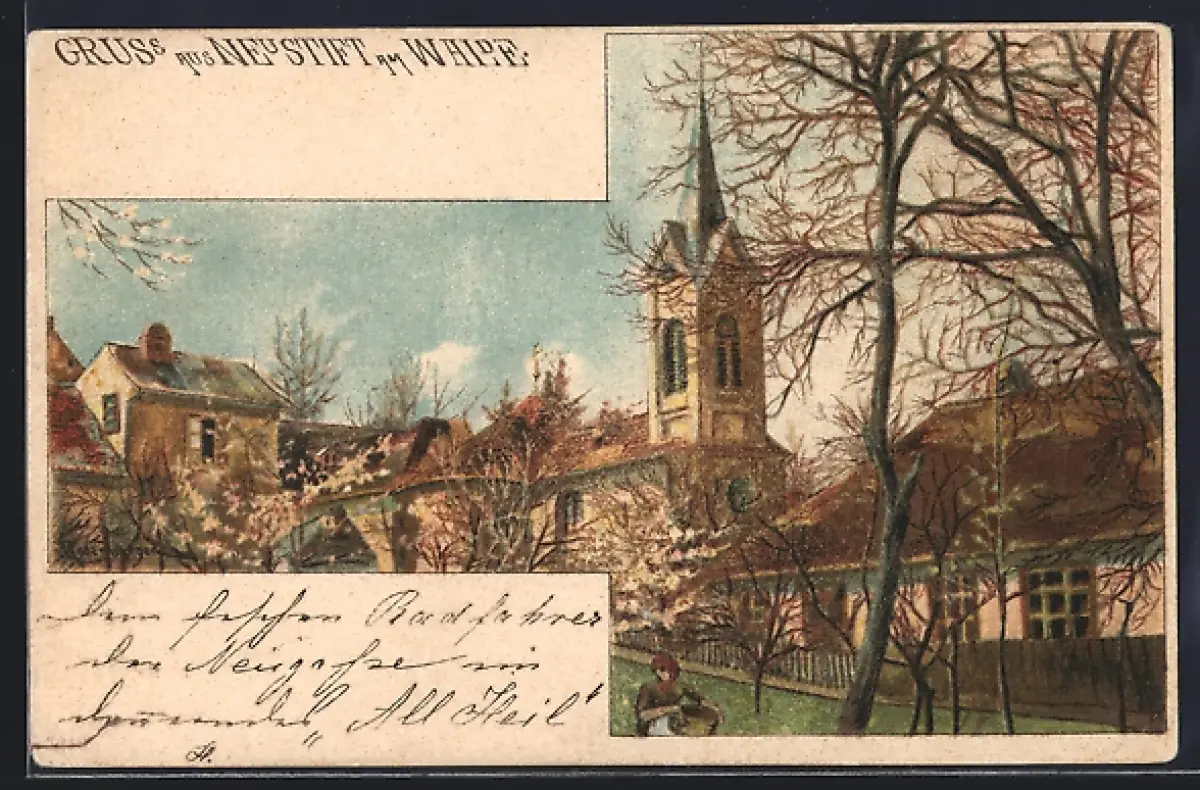 GRUSS AUS NEUSTIFT AM WALDE.
Dem feschen Radfahrer
der Neugasse ein
"All Heil"
H.